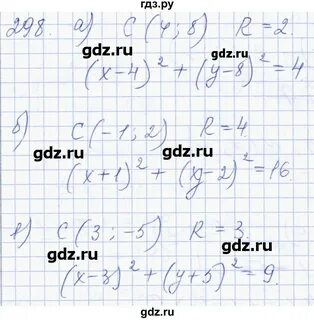 гдз.ру
298. а) C (4; 8) R = 2.
(x-4)² + (y-8)² = 4
б) C(-1; 2) R = 4.
(x+1)² + (y-2)² = 16.
C(3; -5) R = 3.
(x-3)² + (y+5)² = 9.
gdz.ru
gdz.ru
gdz.ru
gdz.ru
gdz.ru
gdz.ru
gdz.ru
gdz.ru